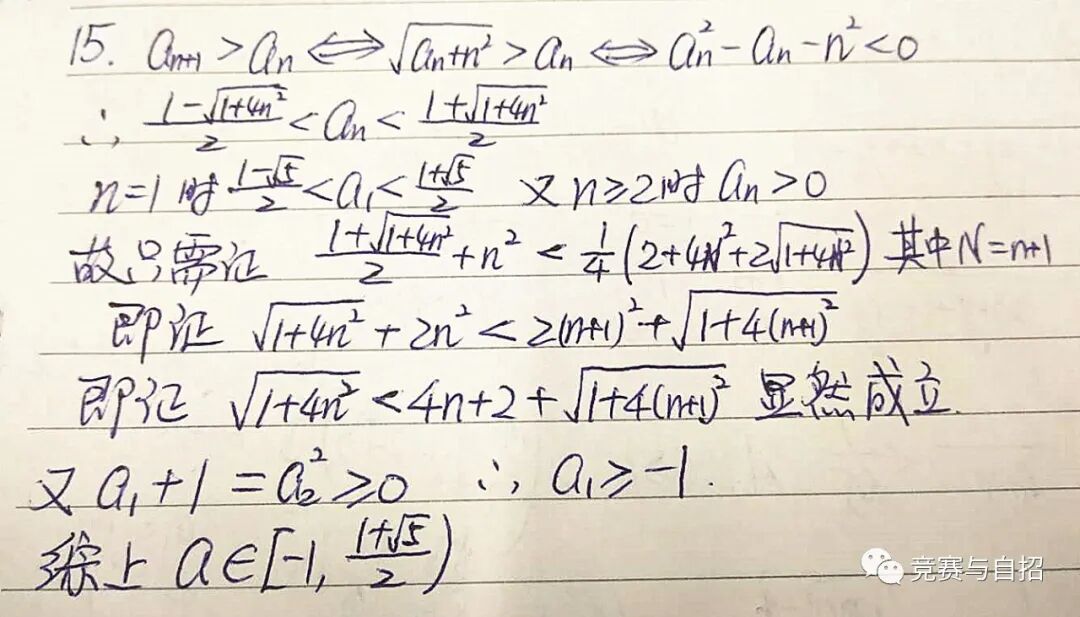 15. aₙ₊₁ > aₙ ⟺ √(aₙ+n²) > aₙ ⟺ aₙ² - aₙ - n² < 0
∴ (1-√(1+4n²))/2 < aₙ < (1+√(1+4n²))/2
n=1时 (1-√5)/2 < a₁ < (1+√5)/2 又n≥2时 aₙ>0
故只需证 (1+√(1+4n²))/2 + n² < 1/4(2+4N²+2√(1+4N²)) 其中N=n+1
即证 √(1+4n²) + 2n² < 2(n+1)² + √(1+4(n+1)²)
即证 √(1+4n²) < 4n+2+√(1+4(n+1)²) 显然成立.
又 a₁+1 = a₂² ≥ 0 ∴ a₁ ≥ -1.
综上 a∈[-1, (1+√5)/2)
竞赛与自招